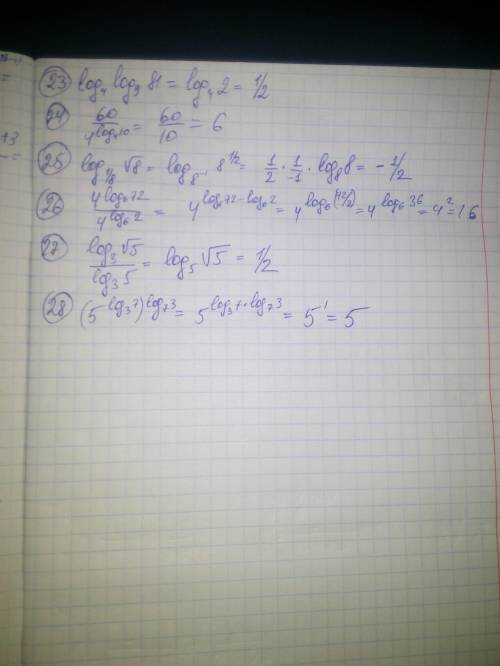 23 log₄ log₉ 81 = log₄ 2 = 1/2
24 60/4^log₄10 = 60/10 = 6
25 log_1/8 √8 = log_8⁻¹ 8^1/2 = 1/2 · 1/-1 · log₈8 = -1/2
26 4^log₆72/4^log₆2 = 4^log₆72-log₆2 = 4^log₆(72/2) = 4^log₆36 = 4² = 16
27 log₃√5/log₃5 = log₅√5 = 1/2
28 (5^log₃7)^log₇3 = 5^log₃7·log₇3 = 5¹ = 5